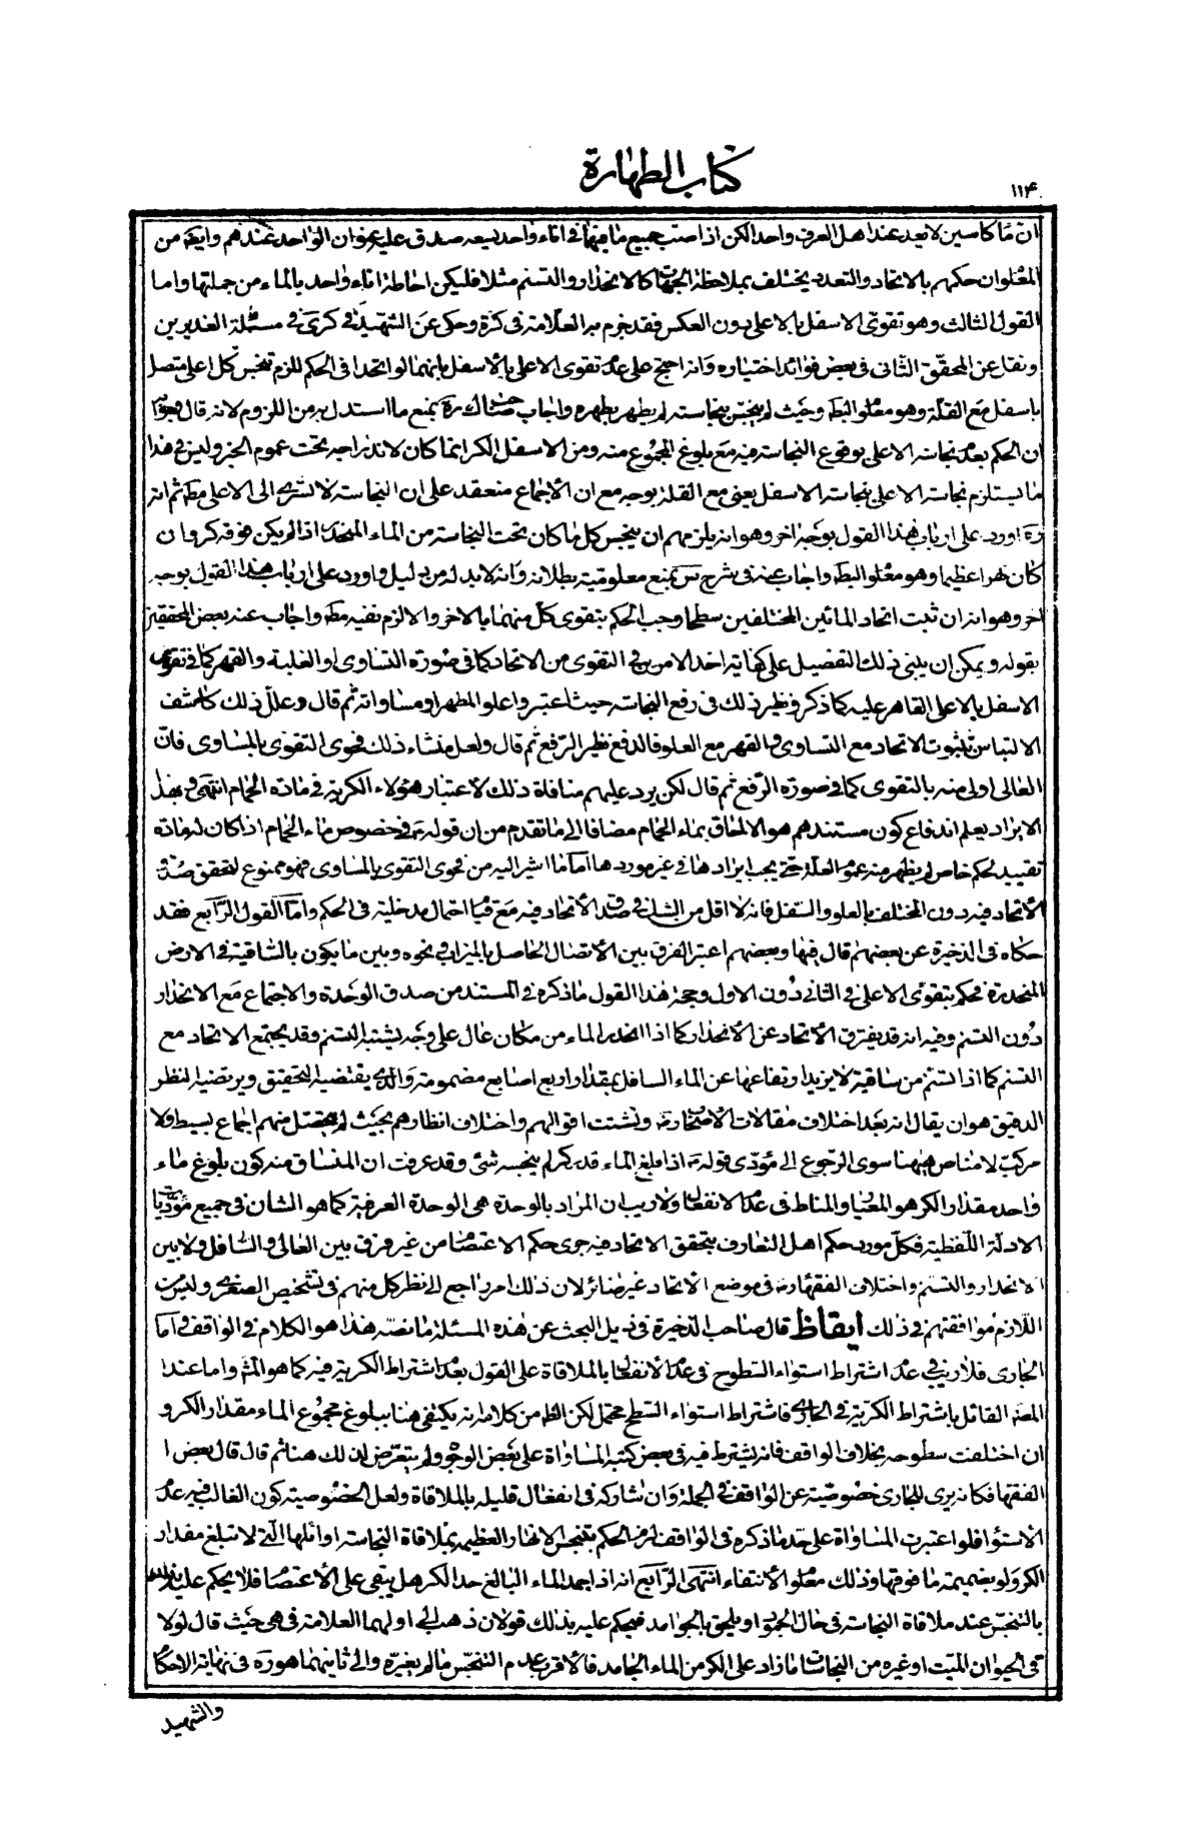 كتاب الطهارة
١١۴
ان ماء كاسين لا يعد عند اهل العرف واحدا لكن اذا صب جميع ما فيهما في اناء واحد يسعه صدق عليه عنوان الواحد عندهم وايضا من
المعلوم ان حكمهم بالاتحاد والتعدد يختلف بملاحظة الجهات كالانحدار والتسنم مثلا فليكن احاطة اناء واحد بالماء من جملتها واما
القول الثالث وهو تقوى الاسفل بالاعلى دون العكس فقد جزم به العلامة في كرة وحكى عن الشهيد في كرى في مسئلة الغديرين
ونقل عن المحقق الثاني في بعض فوائد اختياره وانه احتج على عدم تقوى الاعلى بالاسفل بانهما لو اتحدا في الحكم للزم تنجس كل اعلى متصل
باسفل مع القلة وهو معلوم البطلان وحيث لم ينجس بنجاسته لم يطهر بطهره واجاب صاحب رة بمنع ما استدل به من اللزوم لانه قال
ان الحكم بعدم نجاسة الاعلى بوقوع النجاسة فيه مع بلوغ المجموع منه ومن الاسفل الكر انما كان لاندراجه تحت عموم الخبر وليس في هذا
ما يستلزم نجاسة الاعلى بنجاسة الاسفل يعني مع القلة بوجه مع ان الاجماع منعقد على ان النجاسة لا تسري الى الاعلى مطلقا ثم انه
رة اورد على ارباب هذا القول بوجه اخر وهو انه يلزمهم ان ينجس كل ما كان تحت النجاسة من الماء المنحدر اذا لم يكن فوقه كر وان
كان نهرا عظيما وهو معلوم البطلان واجاب عنه في شرح س بمنع معلومية بطلانه وانه لا بد له من دليل واورد على ارباب هذا القول بوجه
اخر وهو انه ان ثبت اتحاد المائين المختلفين سطحا وجب الحكم بتقوى كل منهما بالاخر والا لزم نفيه مطلقا واجاب عنه بعض المحققين
بقوله ويمكن ان يبنى ذلك التفصيل على كفاية احد الامرين في التقوى من الاتحاد كما في صورة التساوي او الغلبة والقهر كما في تقوى
الاسفل بالاعلى القاهر عليه كما ذكروا نظير ذلك في رفع النجاسة حيث اعتبروا علو المطهر او مساواته ثم قال وعلل ذلك كاشف
الالتباس بثبوت الاتحاد مع التساوي والقهر مع العلو فالدفع نظير الرفع ثم قال ولعل منشاء ذلك فحوى التقوى بالمساوي فان
العالي اولى منه بالتقوى كما في صورة الرفع ثم قال لكن يرد عليهم منافاة ذلك لاعتبار هؤلاء الكرية في مادة الحمام انتهى وبهذا
الايراد يعلم اندفاع كون مستندهم هو الالحاق بماء الحمام مضافا الى ما تقدم من ان قوله ع في خصوص ماء الحمام اذا كان له مادة
تقييد لحكم خاص لم يظهر منه عموم العلة حتى يجب ايرادها في غير موردها اما ما اشير اليه من فحوى التقوى بالمساوي فهو ممنوع لتحقق صدق
الاتحاد فيه دون المختلف بالعلو والسفل فانه لا اقل من الشك في صدق الاتحاد فيه مع قيام احتمال مدخليته في الحكم واما القول الرابع فقد
حكاه في الذخيرة عن بعضهم قال فيها وبعضهم اعتبر الفرق بين الاتصال الحاصل بالميزاب ونحوه وبين ما يكون بالساقية في الارض
المنحدرة فحكم بتقوى الاعلى في الثاني دون الاول وحجة هذا القول ما ذكره في المستند من صدق الوحدة والاجتماع مع الانحدار
دون التسنم وفيه انه قد يفترق الاتحاد عن الانحدار كما اذا انحدر الماء من مكان عال على وجه يشتبه التسنم وقد يجتمع الاتحاد مع
التسنم كما اذا تسنم من ساقية لا يزيد ارتفاعها عن الماء السافل بمقدار اربع اصابع مضمومة والذي يقتضيه التحقيق ويرتضيه النظر
الدقيق هو ان يقال انه بعد اختلاف مقالات الاصحاب رة وتشتت اقوالهم واختلاف انظارهم بحيث لم يحصل منهم اجماع بسيط ولا
مركب لا مناص هيهنا سوى الرجوع الى مؤدى قوله ع اذا بلغ الماء قدر كر لم ينجسه شئ وقد عرفت ان المنساق منه كون بلوغ ماء
واحد مقدار الكر هو المعيار والمناط في عدم الانفعال ولا ريب ان المراد بالوحدة هي الوحدة العرفية كما هو الشان في جميع مؤديات
الادلة اللفظية فكل مورد حكم اهل التعارف بتحقق الاتحاد فيه جرى حكم الاعتصام من غير فرق بين العالي والسافل ولا بين
الانحدار والتسنم واختلاف الفقهاء رة في موضع الاتحاد غير ضائر لان ذلك امر راجع الى نظر كل منهم في تشخيص الصغرى وليس
اللازم موافقتهم في ذلك ايقاظ قال صاحب الذخيرة في ذيل البحث عن هذه المسئلة ما نصه هذا هو الكلام في الواقف واما
الجاري فلا ريب في عدم اشتراط استواء السطوح في عدم الانفعال بالملاقاة على القول بعدم اشتراط الكرية فيه كما هو المشهور واما عند
المصنف القائل باشتراط الكرية في الجاري فاشتراط استواء السطح محتمل لكن الظاهر من كلامه انه يكتفي هنا ببلوغ مجموع الماء مقدار الكر و
ان اختلفت سطوحه بخلاف الواقف فانه يشترط فيه في بعض كتبه المساواة على بعض الوجوه ولم يتعرض لذلك هنا ثم قال قال بعض ا
الفقها فكانه يرى للجاري خصوصية عن الواقف في الجملة وان شاركه في انفعال قليله بالملاقاة ولعل الخصوصية كون الغالب فيه عدم
الاستواء فلو اعتبرت المساواة على حد ما ذكره في الواقف لزم الحكم بتنجس الانهار العظيمة بملاقاة النجاسة اوائلها التي لا تبلغ مقدار
الكر ولو بضميمة ما فوقها وذلك معلوم الانتفاء انتهى الرابع انه اذا جمد الماء البالغ حد الكر هل يبقى على الاعتصام فلا يحكم عليه
بالتنجس عند ملاقاة النجاسة في حال الجمود او يلحق بالجوامد فيحكم عليه بذلك قولان ذهب الى اولهما العلامة في هي حيث قال لو لا
قى الحيوان الميت او غيره من النجاسات ما زاد على الكر من الماء الجامد فالاقرب عدم التنجس ما لم يغيره والى ثانيهما هو رة في نهاية الاحكام
والشهيد